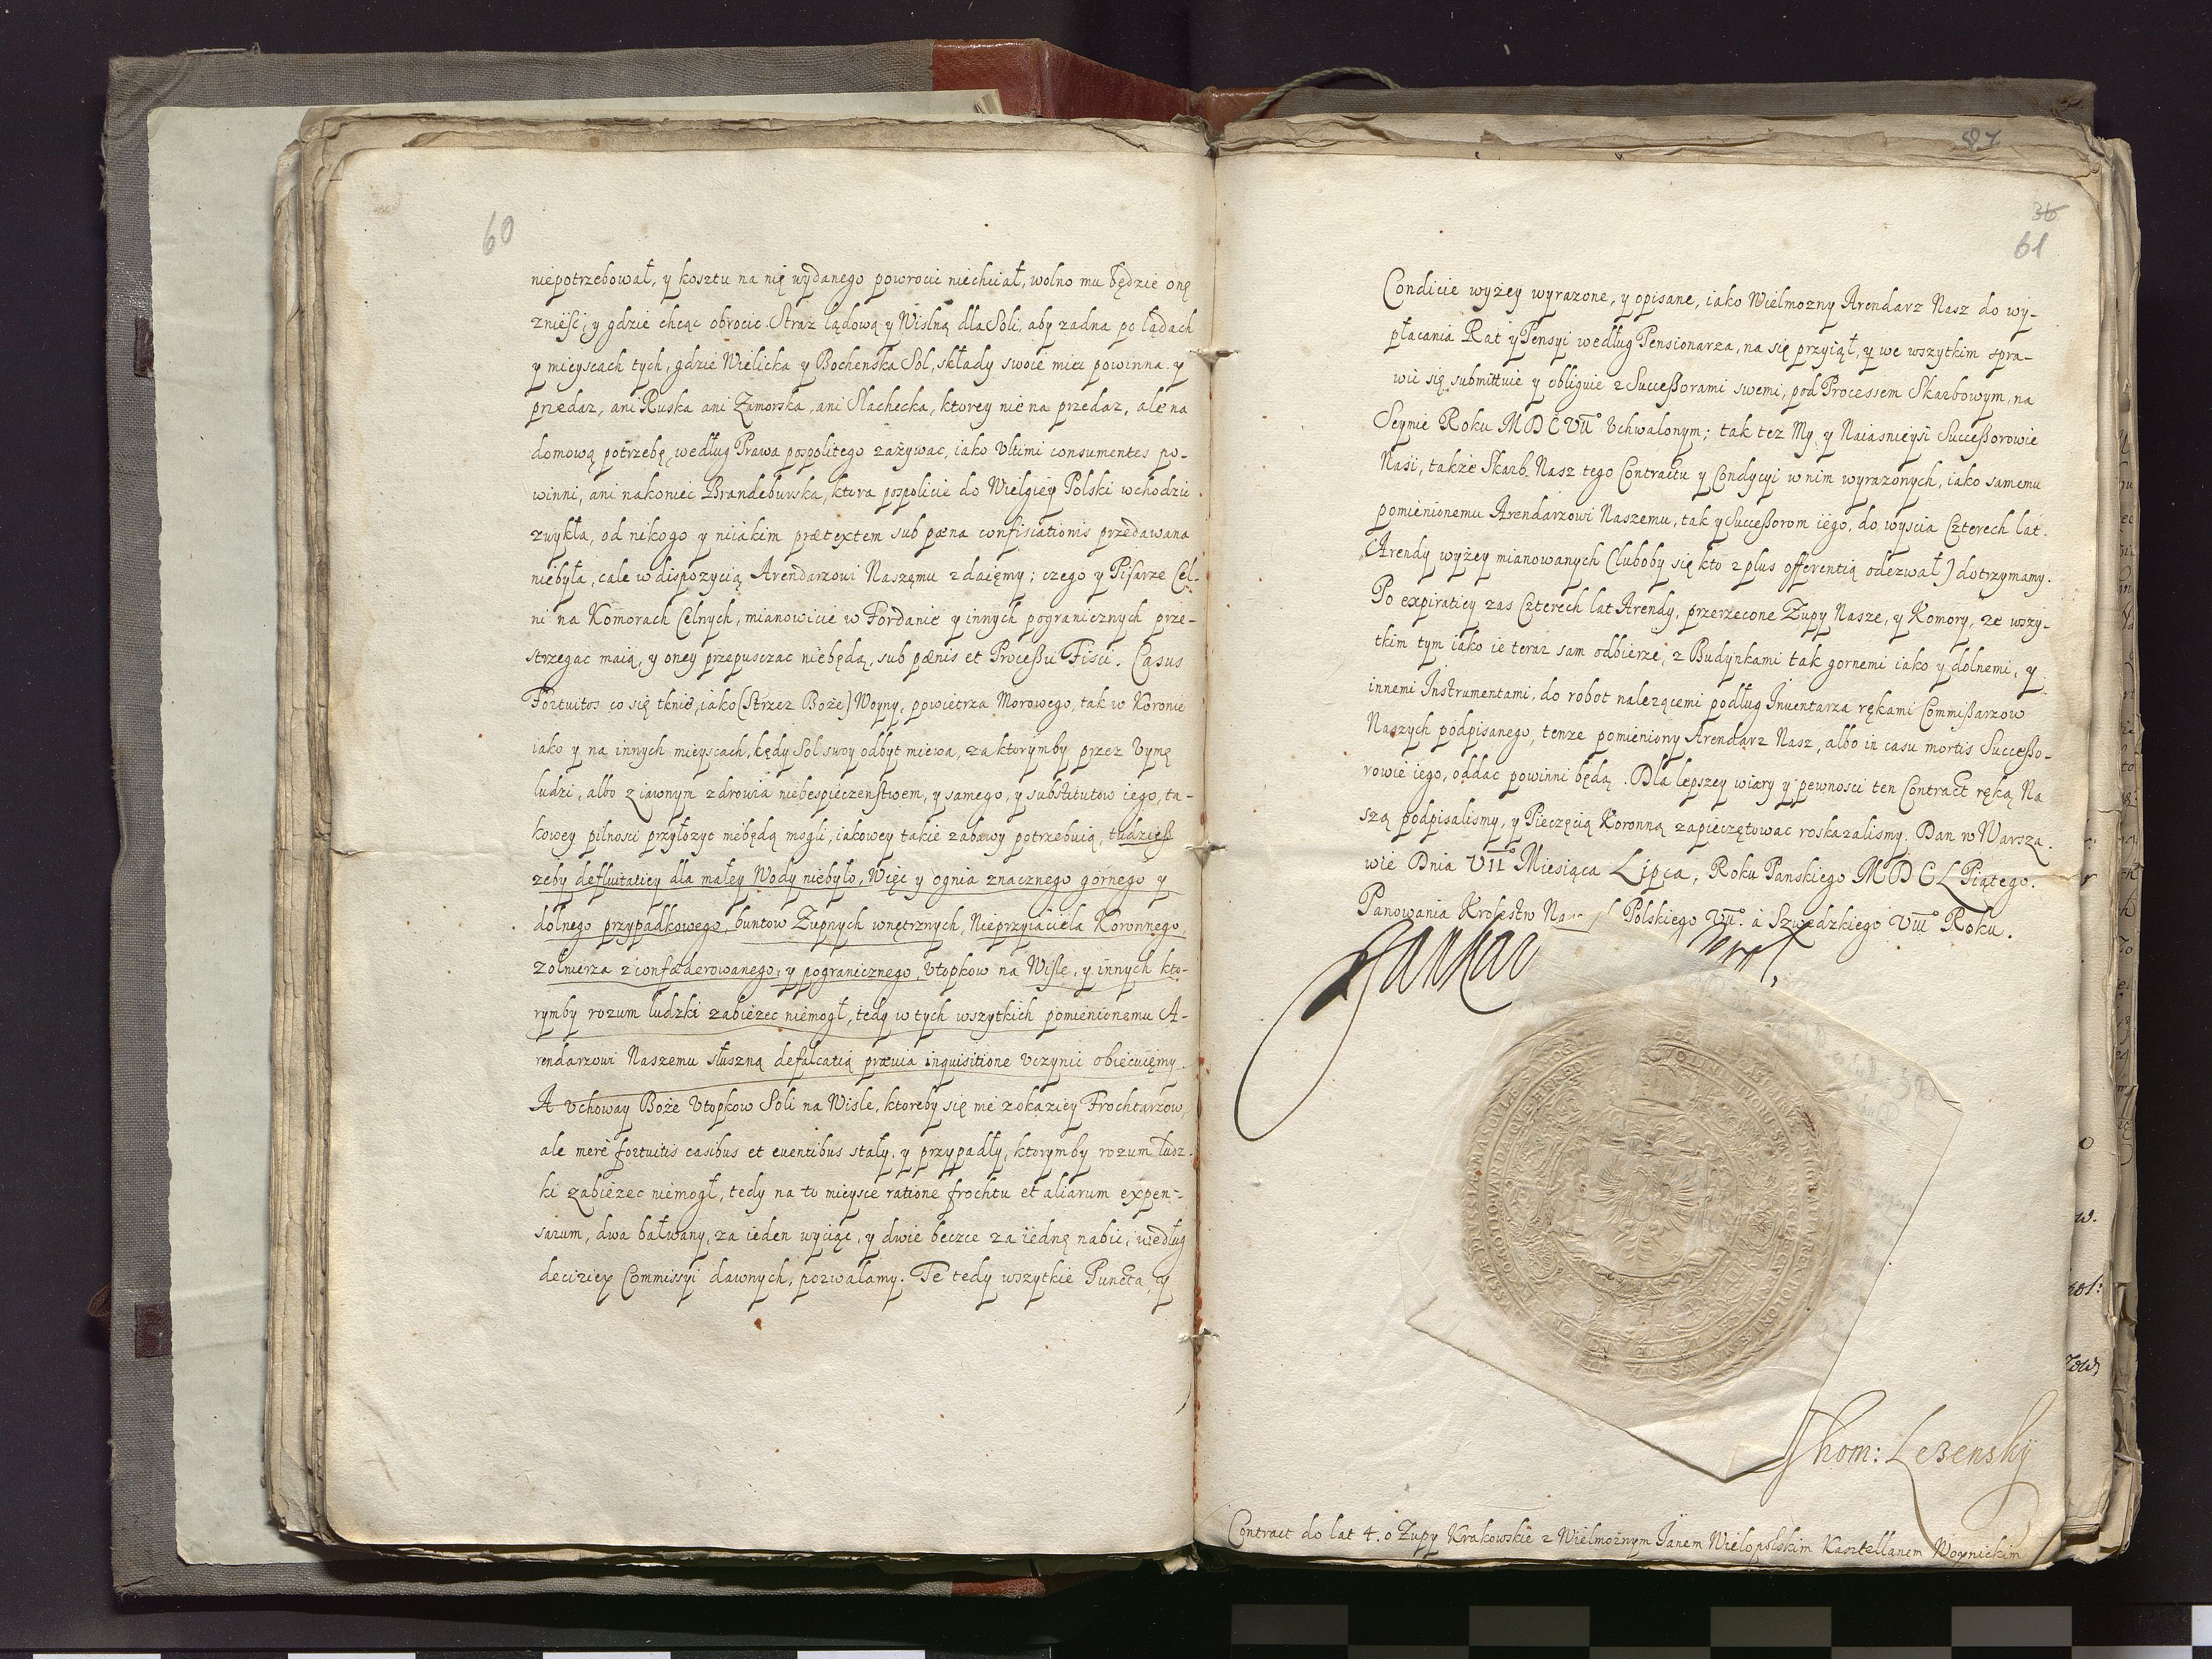 60
niepotrzebował, y kosztu na nię wydanego powrocic niechciał, wolno mu będzie onę
znieść, y gdzie chcąc obrocic. Straz lądową y Wislną dla Soli, aby zadna po lądach
y mieyscach tych, gdzie Wielicka y Bochenska Sol, składy swoie miec powinna y
przedaz, ani Ruska ani Zamorska, ani Slachecka, ktorey nie na przedaz, ale na
domową potrzebę, według Prawa pospolitego zażywac, iako Vltimi consumentes po-
winni, ani nakoniec Brandeburska, ktora pospolicie do Wielgiey Polski wchodzic
zwykła, od nikogo y niiakim prætextem sub pæna confiscationis przedawana
niebyła, cale w dispozycią Arendarzowi Naszemu zdaięmy; czego y Pisarze Cel-
ni na Komorach Celnych, mianowicie w Fordanie y innych pogranicznych prze-
strzegac maią, y oney przepusczac niebędą, sub pænis et Processu Fisci. Casus
Fortuitos co się tknie, iako (Strzez Boże) Woyny, powietrza Morowego, tak w Koronie
iako y na innych mieyscach, kędy Sol swoy odbyt miewa, za ktorymby przez Vymę
ludzi, albo z iawnym zdrowia niebespieczenstwem, y samego, y substitutow iego, ta-
kowey pilnosci przyłozyc niebędą mogli, iakowey takie zabawy potrzebuią, tudziesz
zeby defluitatiey dla małey Wody niebyło, Więc y ognia znacznego górnego y
dolnego przypadkowego, buntow Zupnych wnętrznych, Nieprzyiaciela Koronnego,
zolnierza zconfæderowanego, y pogranicznego, Vtopkow na Wisle, y innych kto-
rymby rozum ludzki zabiezec niemogł, tedy w tych wszytkich pomienionemu A-
rendarzowi Naszemu słuszną defalcatią prævia inquisitione Vczynic obiecuięmy.
A Vchoway Boże Vtopkow Soli na Wisle, ktoreby się nie z okaziey Frochtarzow,
ale merè fortuitis casibus et euentibus stały, y przypadły, ktorymby rozum ludz-
ki zabiezec niemogł, tedy na to mieysce ratione frochtu et aliarum expen-
sarum, dwa bałwany, za ieden wyciąc, y dwie beczce za iednę nabic, według
deciziey Commissyi dawnych, pozwalamy. Te tedy wszytkie Puncta, y
87
36
61
Condicie wyżey wyrazone, y opisane, iako Wielmozny Arendarz Nasz do wy-
płacania Rat y Pensyi według Pensionarza, na się przyiął, y we wszytkim spra-
wic się submittuie y obliguie z Successorami swemi, pod Processem Skarbowym, na
Seymie Roku MDCVII° Vchwalonym; tak tez My y Naiasnieysi Successorowie
Nasi, także Skarb Nasz tego Contractu y Condycyi w nim wyrazonych, iako samemu
pomienionemu Arendarzowi Naszemu, tak y Successorom iego, do wyscia Czterech lat
Arendy wyżey mianowanych (luboby się kto z plus offerentią odezwał) dotrzymamy.
Po expiratiey zas Czterech lat Arendy, przerzecone Zupy Nasze, y Komory, ze wszy-
tkim tym iako ie teraz sam odbierze, z Budynkami tak gornemi iako y dolnemi, y
innemi Instrumentami, do robot nalezącemi podług Inuentarza rękami Commissarzow
Naszych podpisanego, tenze pomieniony Arendarz Nasz, albo in casu mortis Successo-
rowie iego, oddac powinni będą. Dla lepszey wiary y pewnosci ten Contract ręką Na
szą podpisalismy, y Pieczęcią Koronną zapieczętowac roskazalismy. Dan w Warsza-
wie Dnia VII° Miesiąca Lipca, Roku Panskiego MDCL Piątego.
Panowania Krolestw Polskiego VII°. a Szwedzkiego VIII° Roku.
Thom: Lezensky
Contract do lat 4. o Zupy Krakowskie z Wielmożnym Janem Wielopolskim Kasztellanem Woynickim